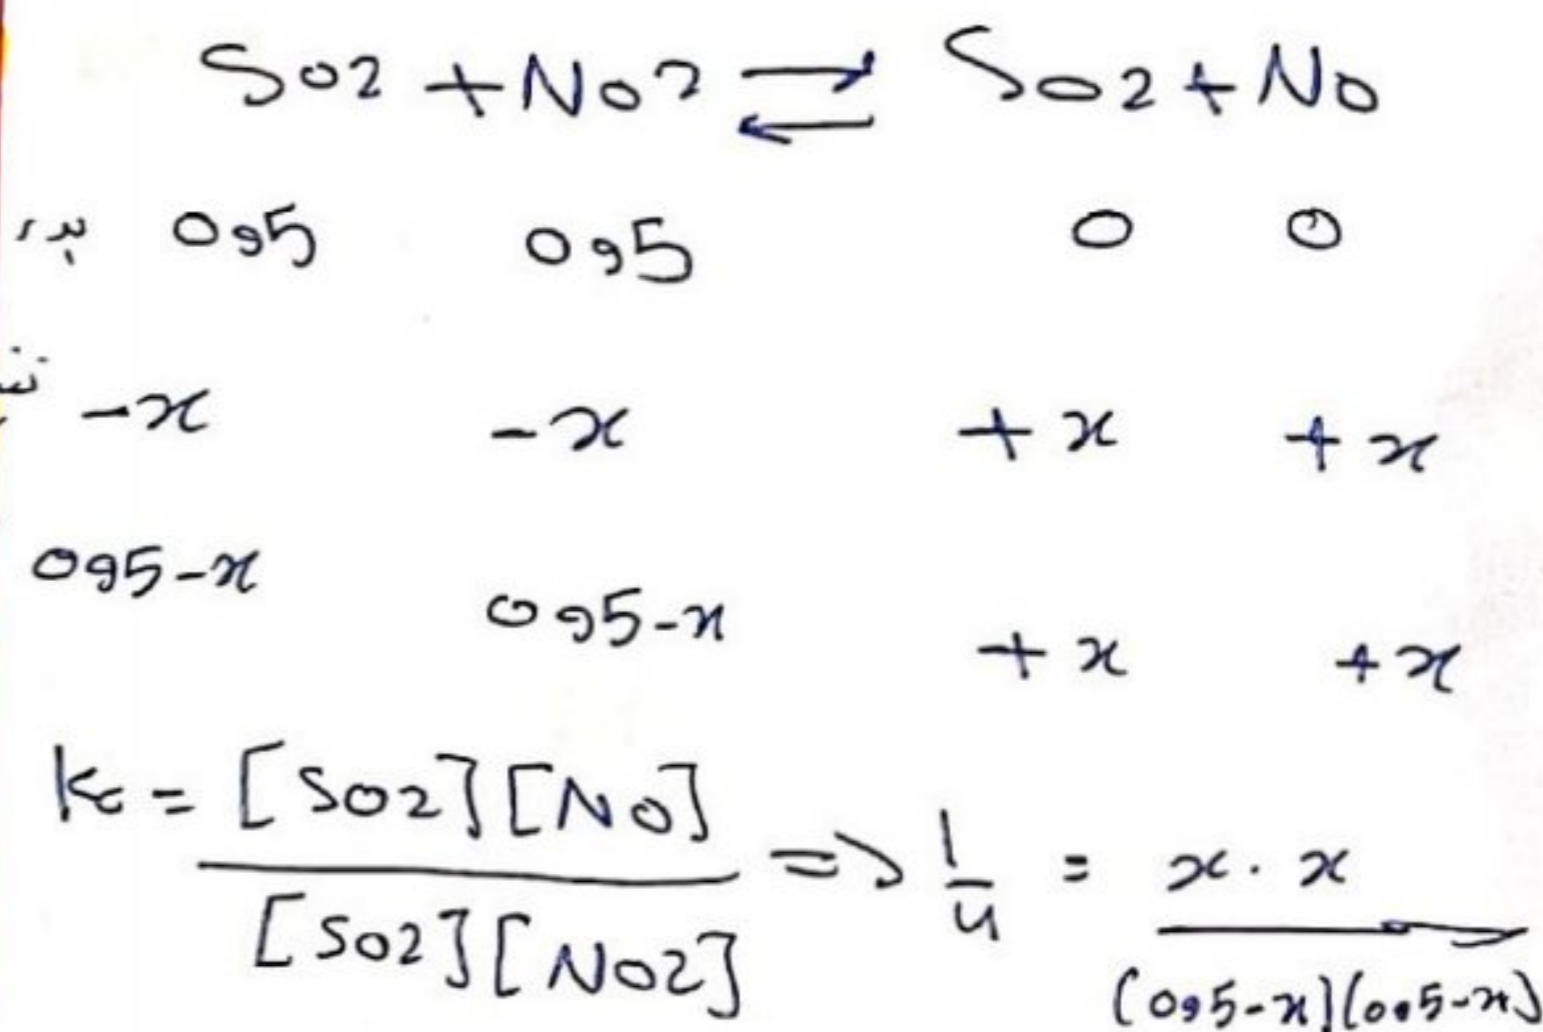 SO2 + NO2 ⇌ SO2 + NO
0,5 0,5 0 0
-x -x +x +x
0,5-x 0,5-x +x +x
Kc = [SO2][NO] / [SO2][NO2] => 1/4 = x . x / (0,5-x)(0,5-x)